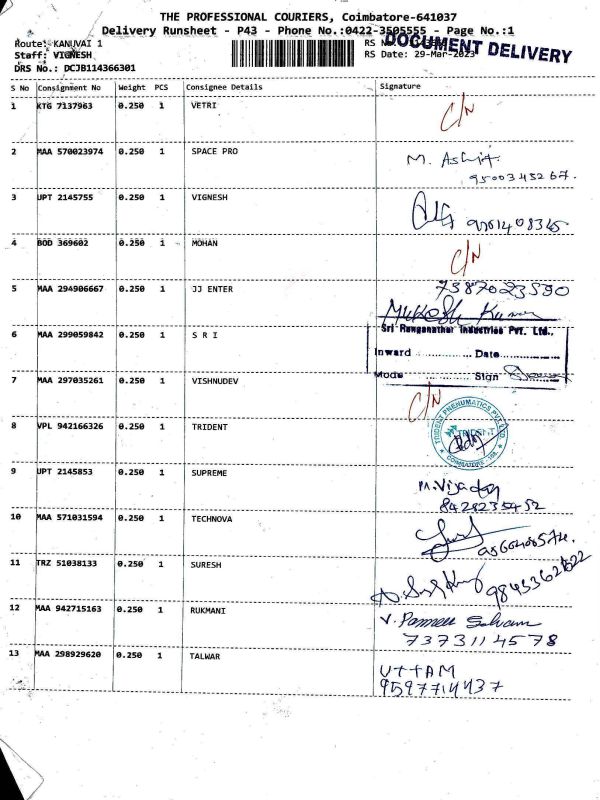 THE PROFESSIONAL COURIERS, Coimbatore-641037
Delivery Runsheet - P43 - Phone No.:0422-3505555 - Page No.:1
Route: KANUVAI 1
RS No
DOCUMENT DELIVERY
Staff: VIGNESH
RS Date: 29-Mar-2023
DRS No.: DCJB114366301
S No Consignment No Weight PCS Consignee Details Signature
1 KTG 7137963 0.250 1 VETRI C/N
2 MAA 570023974 0.250 1 SPACE PRO M. Ashit
9500345267.
3 UPT 2145755 0.250 1 VIGNESH
4 BOD 369602 0.250 1 MOHAN C/N
5 MAA 294906667 0.250 1 JJ ENTER 7387023590
Mukesh Kumar
6 MAA 299059842 0.250 1 S R I Sri Ranganathar Industries Pvt. Ltd.,
Inward .............. Date..............
Mode .............. Sign
7 MAA 297035261 0.250 1 VISHNUDEV C/N
8 VPL 942166326 0.250 1 TRIDENT TRIDENT PNEUMATICS PVT LTD
TRIDENT
COIMBATORE
9 UPT 2145853 0.250 1 SUPREME
8428235452
10 MAA 571031594 0.250 1 TECHNOVA
11 TRZ 51038133 0.250 1 SURESH
12 MAA 942715163 0.250 1 RUKMANI V. Panneer Selvam
7373114578
13 MAA 298929620 0.250 1 TALWAR UTTAM
9597714437